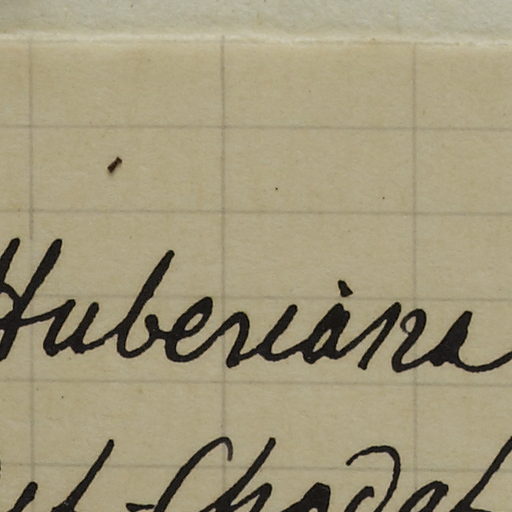 Huberiana
et-Chodat